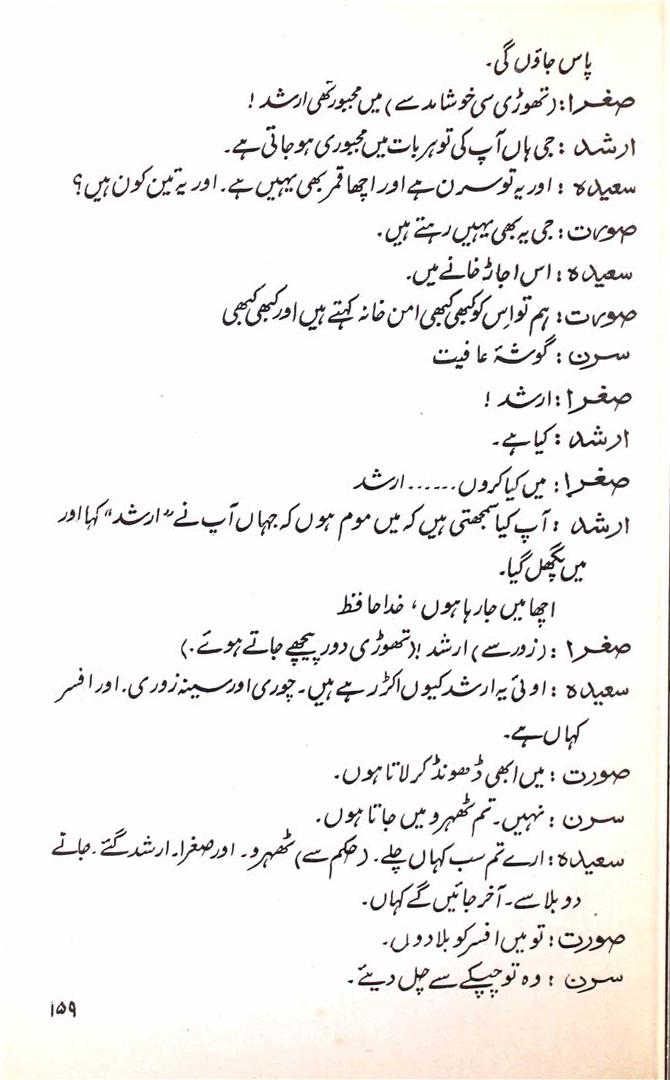 پاس جاؤں گی۔
صغرا: (تھوڑی سی خوشامد سے) میں مجبور تھی ارشد !
ارشد : جی ہاں آپ کی تو ہر بات میں مجبوری ہو جاتی ہے۔
سعیدہ : اور یہ تو سرن ہے اور اچھا قمر بھی یہیں ہے۔ اور یہ تین کون ہیں؟
صورت: جی یہ بھی یہیں رہتے ہیں۔
سعیدہ : اس اجاڑ خانے میں۔
صورت: ہم تو اِس کو کبھی کبھی امن خانہ کہتے ہیں اور کبھی کبھی
سرن : گوشۂ عافیت
صغرا : ارشد !
ارشد : کیا ہے۔
صغرا : میں کیا کروں ...... ارشد
ارشد : آپ کیا سمجھتی ہیں کہ میں موم ہوں کہ جہاں آپ نے ”ارشد“ کہا اور
میں پگھل گیا۔
اچھا میں جا رہا ہوں ، خدا حافظ
صغرا : (زور سے) ارشد !(تھوڑی دور پیچھے جاتے ہوئے۔)
سعیدہ : اوئی یہ ارشد کیوں اکڑ رہے ہیں۔ چوری اور سینہ زوری۔ اور افسر
کہاں ہے۔
صورت : میں ابھی ڈھونڈ کر لاتا ہوں۔
سرن : نہیں۔ تم ٹھہرو میں جاتا ہوں۔
سعیدہ : ارے تم سب کہاں چلے۔ (حکم سے) ٹھہرو۔ اور صغرا۔ ارشد گئے۔ جانے
دو بلا سے۔ آخر جائیں گے کہاں۔
صورت : تو میں افسر کو بلا دوں۔
سرن : وہ تو چپکے سے چل دیئے۔
۱۵۹